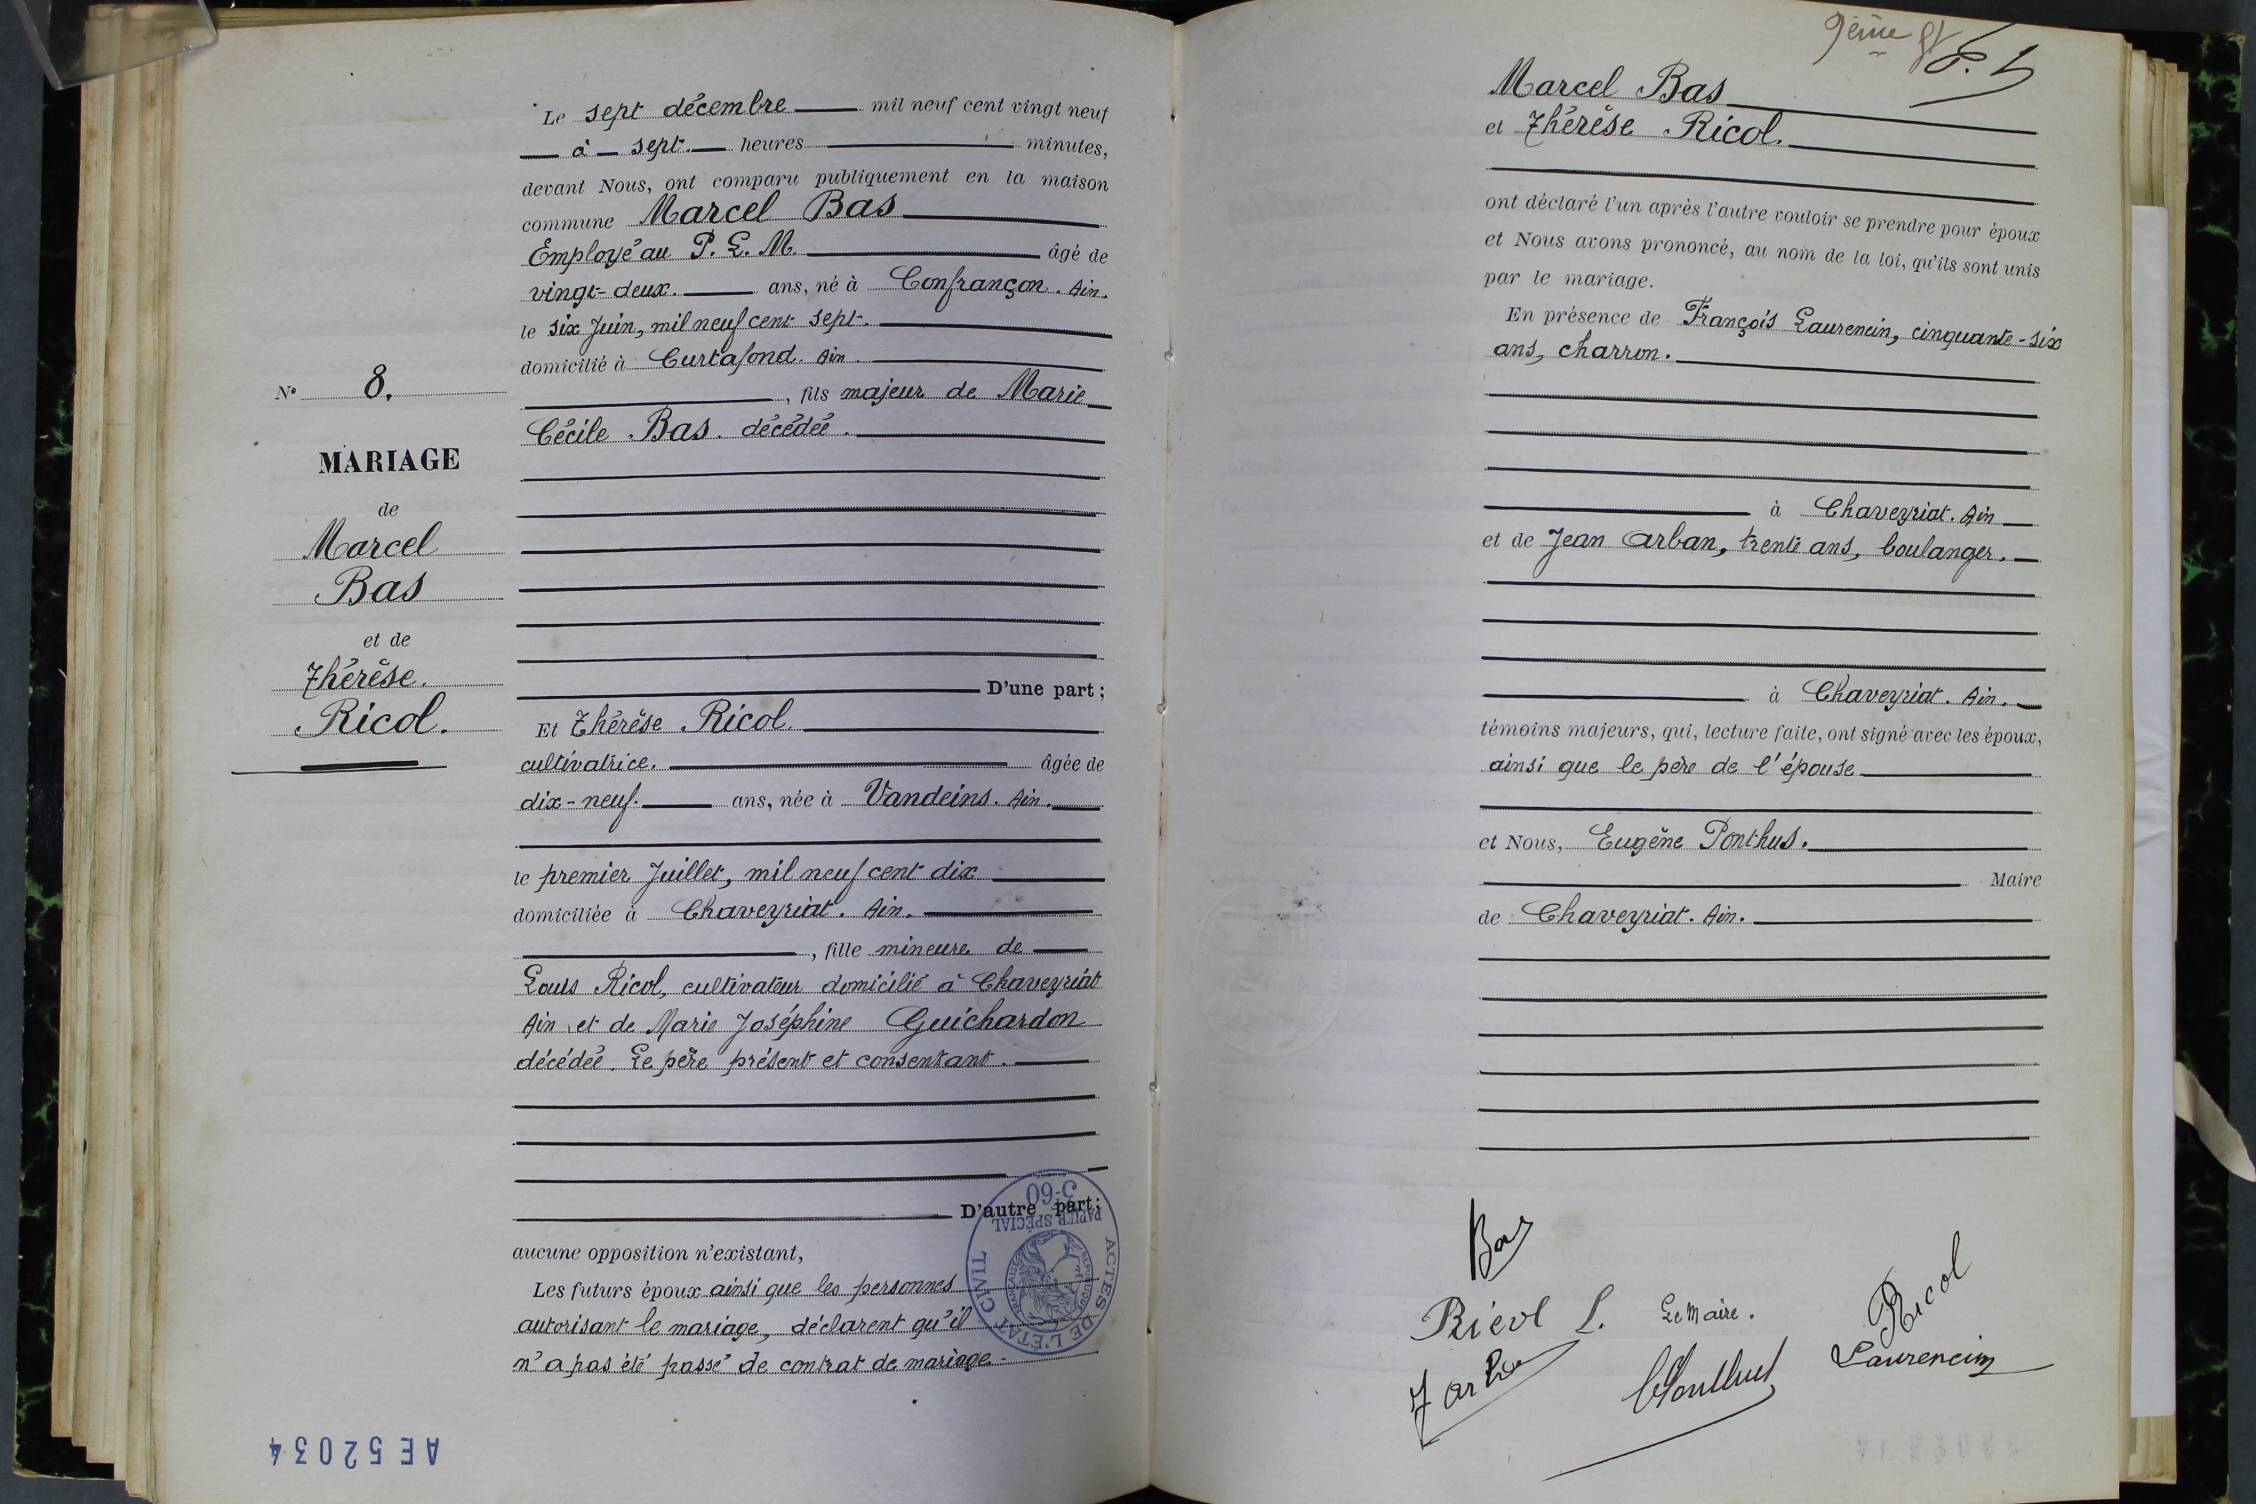 Le sept décembre mil neuf cent vingt neuf
à sept heures minutes,
devant Nous, ont comparu publiquement en la maison
commune Marcel Bas
Employé au P. L. M. âgé de
vingt-deux. ans, né à Confrançon. Ain.
le six Juin, mil neuf cent sept.
domicilié à Curtafond. Ain.
, fils majeur de Marie
Cécile Bas. décédée.
N° 8.
MARIAGE
de
Marcel
Bas
et de
Thérèse.
Ricol.
D'une part ;
Et Thérèse Ricol.
cultivatrice. âgée de
dix-neuf. ans, née à Vandeins. Ain.
le premier Juillet, mil neuf cent dix
domiciliée à Chaveyriat. Ain.
, fille mineure de
Louis Ricol, cultivateur domicilié à Chaveyriat
Ain et de Marie Joséphine Guichardon
décédée. Le père présent et consentant.
D'autre part ;
aucune opposition n'existant,
Les futurs époux ainsi que les personnes
autorisant le mariage, déclarent qu'il
n'a pas été passé de contrat de mariage.
ACTES DE L'ÉTAT CIVIL
PAPIER SPÉCIAL
3-60
RÉPUBLIQUE FRANÇAISE
AE52034
9ème
Marcel Bas
et Thérèse Ricol.
ont déclaré l'un après l'autre vouloir se prendre pour époux
et Nous avons prononcé, au nom de la loi, qu'ils sont unis
par le mariage.
En présence de François Laurencin, cinquante-six
ans, charron.
à Chaveyriat. Ain
et de Jean Arban, trente ans, boulanger.
à Chaveyriat. Ain.
témoins majeurs, qui, lecture faite, ont signé avec les époux,
ainsi que le père de l'épouse
et Nous, Eugène Ponthus.
Maire
de Chaveyriat. Ain.
Bas
Ricol L. Le Maire. Ricol
Laurencin